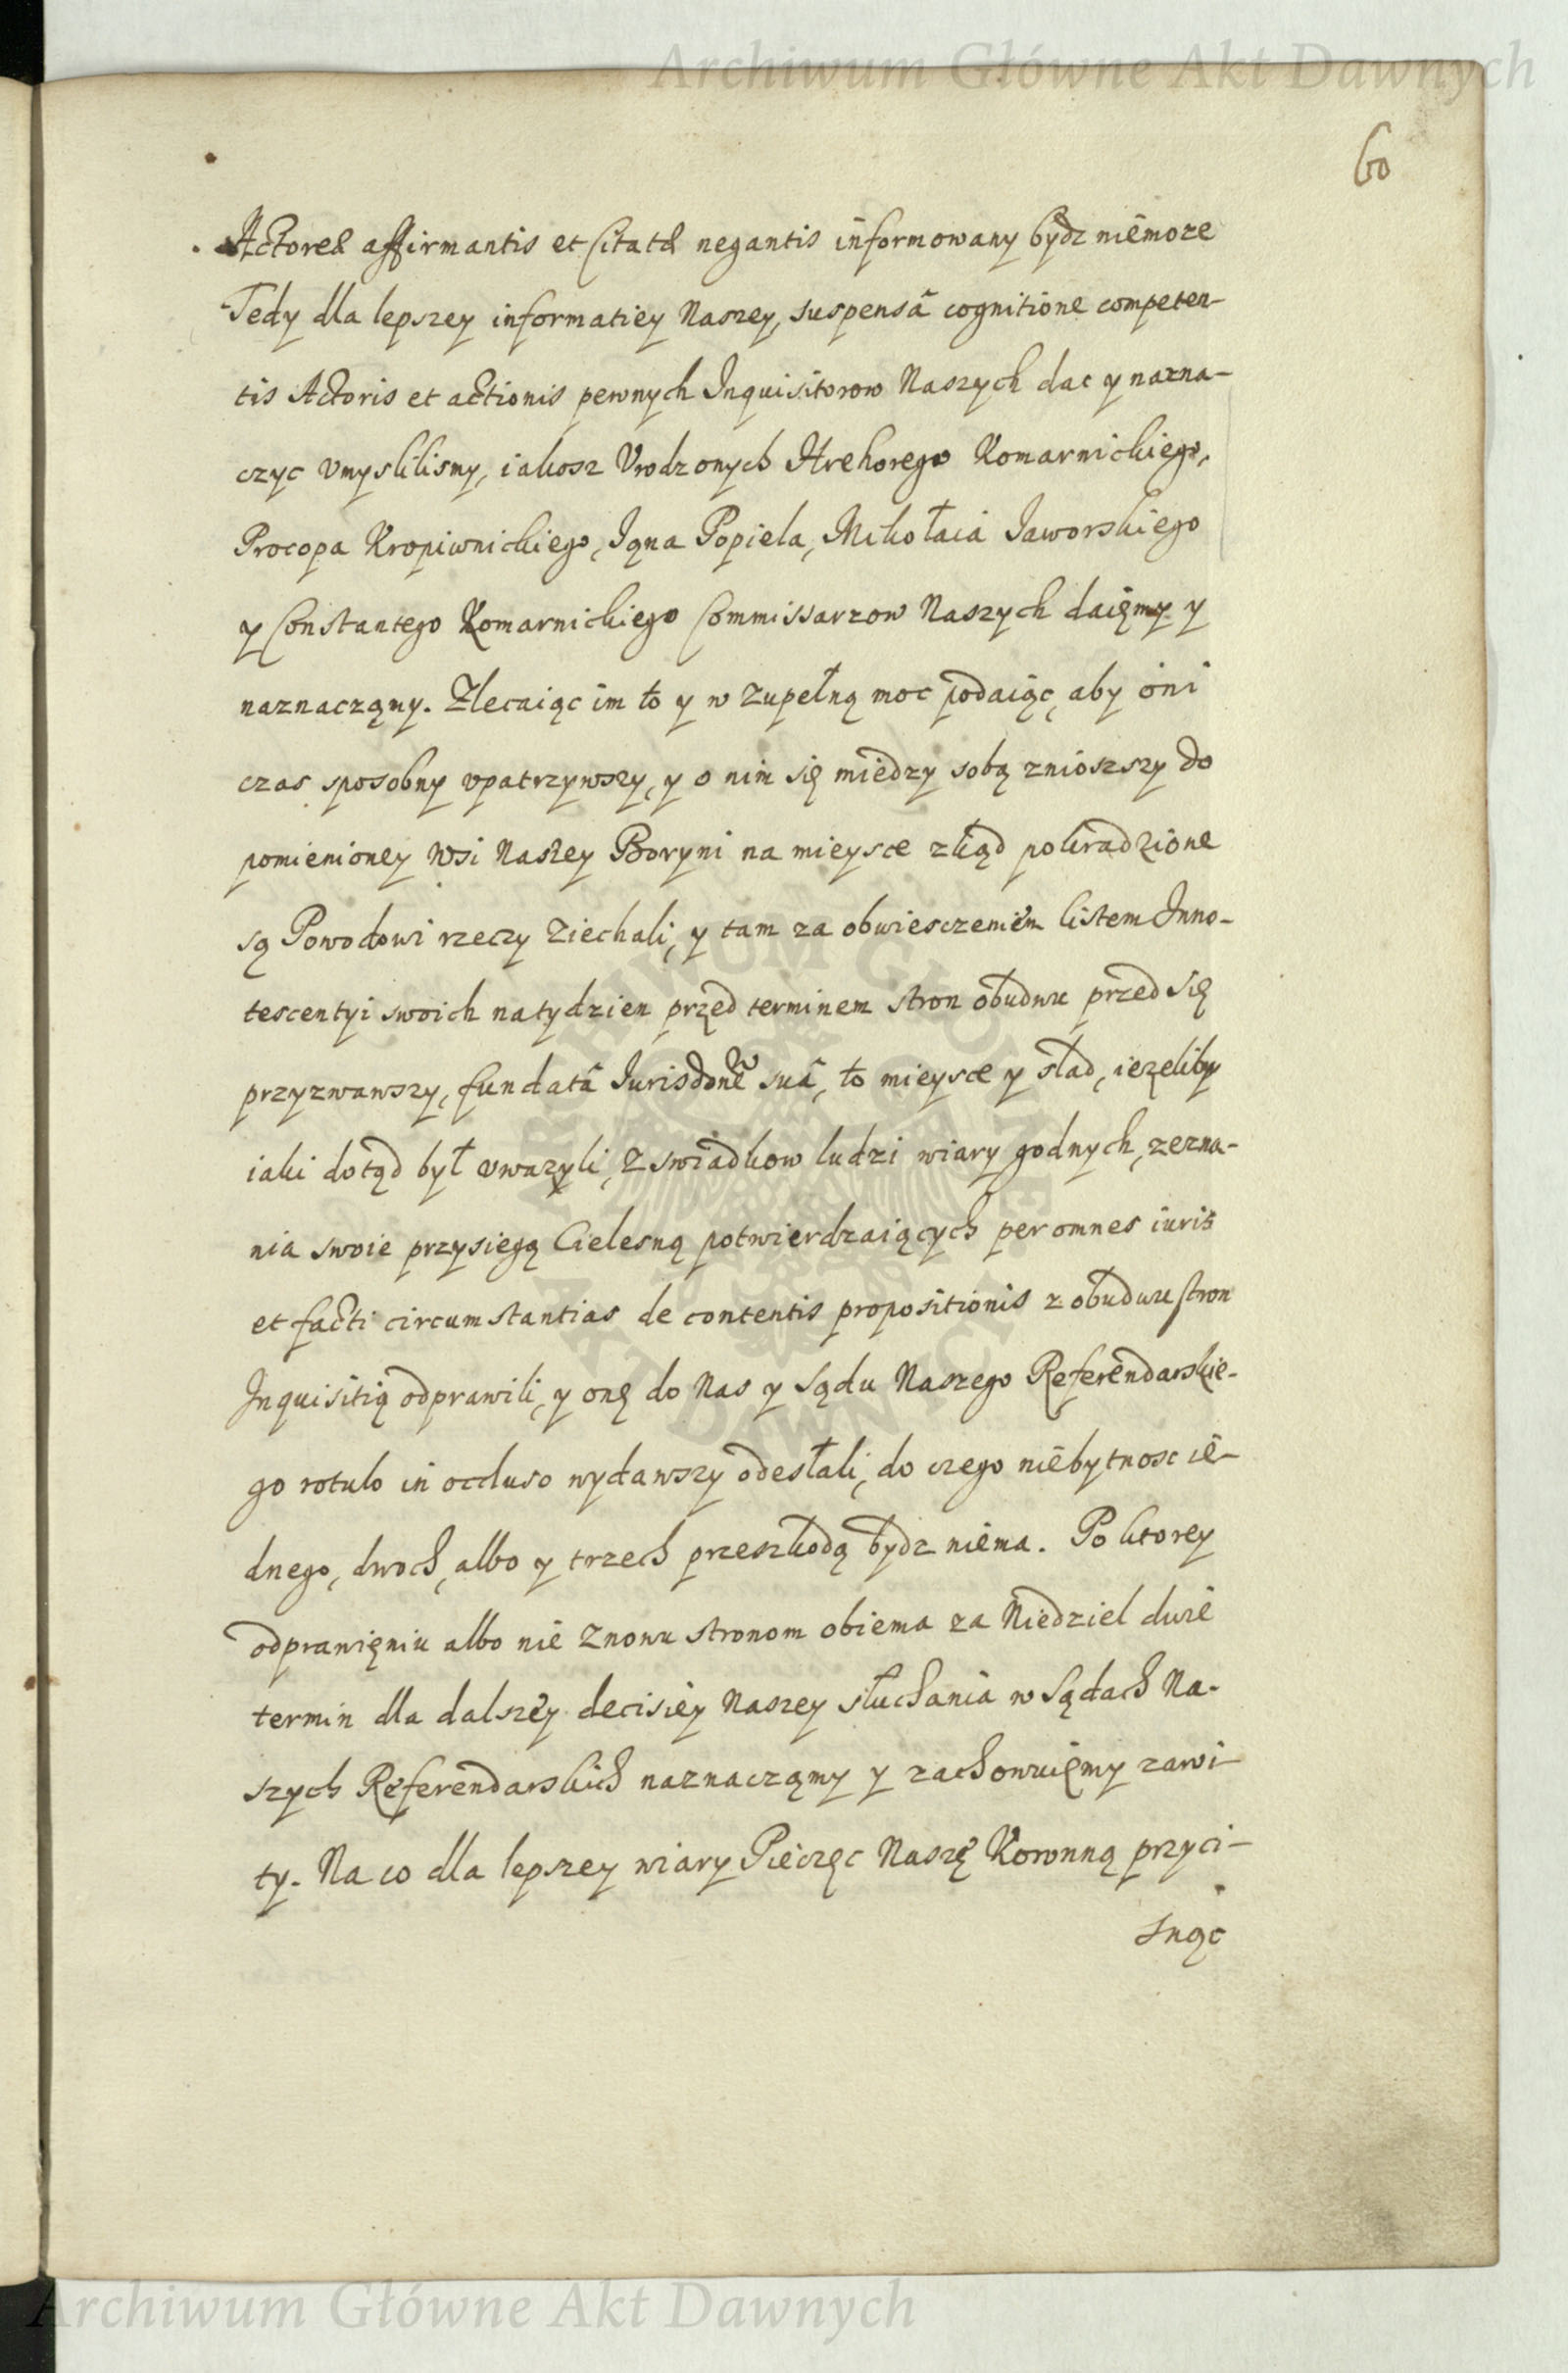 Archiwum Główne Akt Dawnych
60
Actorea affirmantis et Citata negantis informowany bydz niemoze
Tedy dla lepszey informatiey Naszey, suspensâ cognitione competen-
tis Actoris et actionis pewnych Inquisitorow Naszych dac y nazna-
czyc vmyslilismy, iakosz Vrodzonych Hrehorego Komarnickiego,
Procopa Kropiwnickiego, Iana Popiela, Mikołaia Iaworskiego
y Constantego Komarnickiego Commissarzow Naszych daięmy y
naznaczamy. Zlecaiąc im to y w zupełną moc podaiąc, aby oni
czas sposobny vpatrzywszy, y o nim się miedzy sobą znioszszy do
pomienioney Wsi Naszey Boryni na mieysce zkąd pokradzione
są Powodowi rzeczy ziechali, y tam za obwiesczeniem listem Inno-
tescentyi swoich natydzien przed terminem stron obudwu przed się
przyzwawszy, fundatâ Iurisdone suâ, to mieysce y slad, iezeliby
iaki dotąd był vwazyli, z swiadkow ludzi wiary godnych, zezna-
nia swoie przysiegą Cielesną potwierdzaiących per omnes iuris
et facti circumstantias de contentis propositionis z obudwu stron
Inquisitią odprawili, y onę do Nas y Sądu Naszego Referendarskie-
go rotulo in occluso wydawszy odesłali, do czego niebytnosc ie-
dnego, dwoch, albo y trzech przeszkodą bydz niema. Po ktorey
odprawięniu albo nie znowu stronom obiema za Niedziel dwie
termin dla dalszey decisiey Naszey słuchania w Sądach Na-
szych Referendarskich naznaczamy y zachowuięmy zawi-
ty. Na co dla lepszey wiary Pieczęc Naszę Koronną przyci-
snąc
ARCHIWUM GŁÓWNE AKT DAWNYCH
Archiwum Główne Akt Dawnych